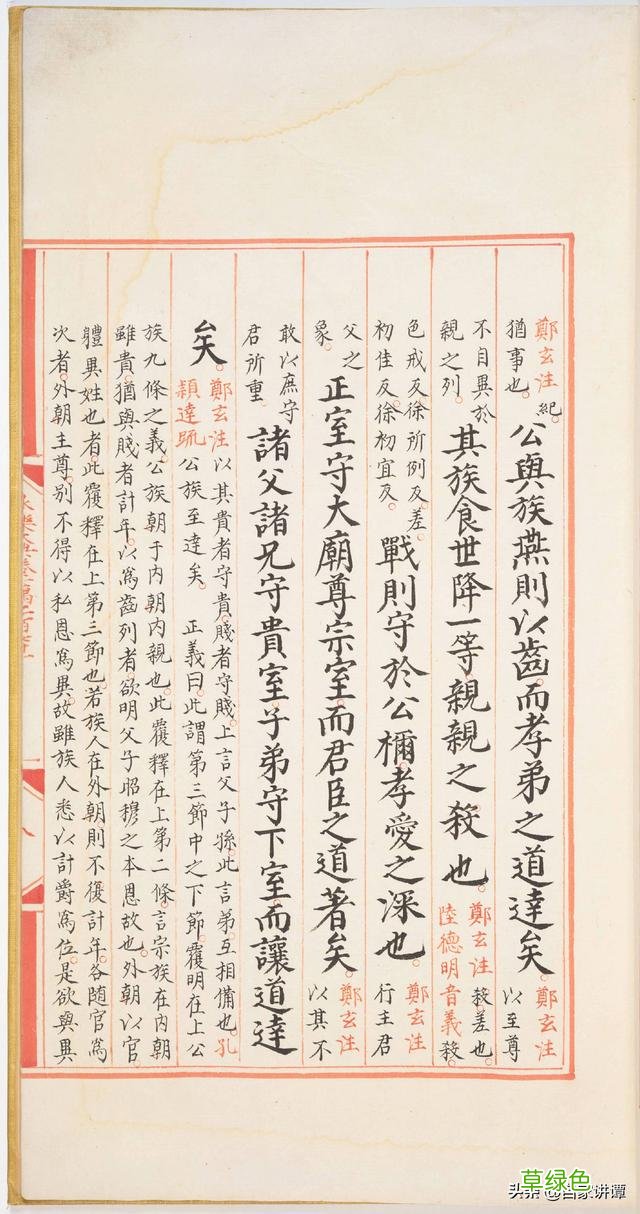 鄭玄注紀猶事也。公與族燕則以齒。而孝弟之道達矣。鄭玄注以至尊
不自異於親之列。其族食世降一等。親親之殺也。鄭玄注殺差也。陸德明音義殺
色戒反徐所例反。差初佳反徐初宜反。戰則守於公禰。孝愛之深也。鄭玄注行主君
父之象。正室守大廟。尊宗室。而君臣之道著矣。鄭玄注以其不
敢以庶守君所重。諸父諸兄守貴室。子弟守下室。而讓道達
矣。鄭玄注以其貴者守貴。賤者守賤。上言父子孫。此言弟。互相備也。孔
穎達疏 公族至達矣。 正義曰。此謂第三節中之下節。覆明在上公
族九條之義。公族朝于内朝内親也。此覆釋在上第二條。言宗族在内朝
雖貴。猶與賤者計年。以為齒列者。欲明父子昭穆之本恩故也。外朝以官
體異姓也者。此覆釋在上第三節也。若族人在外朝則不復計年。各隨官為
次者。外朝主尊别不得以私恩為異。故雖族人悉以計爵為位。是欲與異
草绿色
头条 @百家讲谭